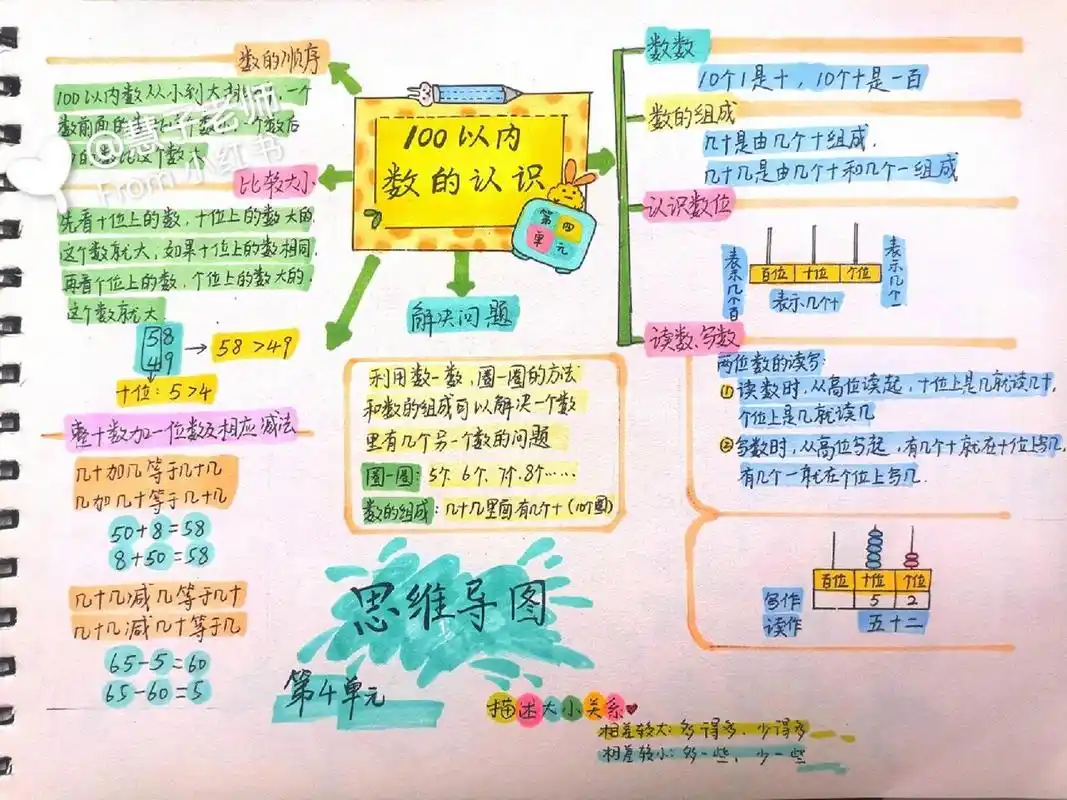 100以内
数的认识
第四
单元
数的顺序
100以内数从小到大
数前面的数
个数后
这个数大
比较大小
先看十位上的数,十位上的数大的,
这个数就大,如果十位上的数相同,
再看个位上的数,个位上的数大的,
这个数就大
58
49
→ 58>49
十位:5>4
整十数加一位数及相应减法
几十加几等于几十几
几加几十等于几十几
50+8=58
8+50=58
几十几减几等于几十
几十几减几十等于几
65-5=60
65-60=5
解决问题
利用数一数,圈一圈的方法
和数的组成可以解决一个数
里有几个另一个数的问题
圈一圈:5个.6个.7个.8个……
数的组成:几十几里面有几个十(10个圈)
数数
10个1是十,10个十是一百
数的组成
几十是由几个十组成.
几十几是由几个十和几个一组成
认识数位
表示几个百
百位 十位 个位
表示几个一
表示几个十
读数、写数
两位数的读写:
①读数时,从高位读起,十位上是几就读几十,
个位上是几就读几
②写数时,从高位写起,有几个十就在十位上写几,
有几个一就在个位上写几.
百位 十位 个位
写作 5 2
读作 五十二
思维导图
第4单元
描述大小关系
相差较大:多得多、少得多
相差较小:多一些、少一些
@慧子老师
From 小红书